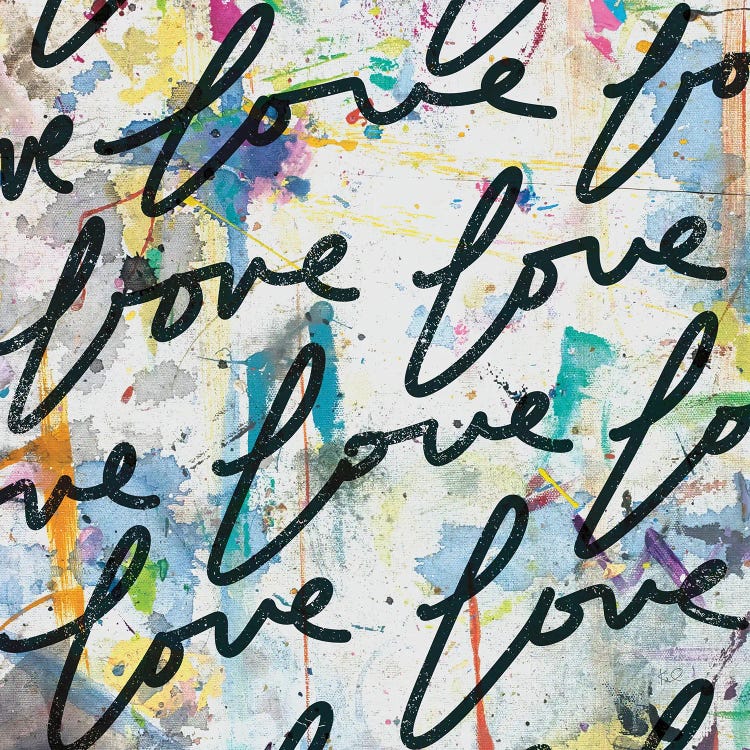 love lo
ve love
love love
love lo
ve
love love